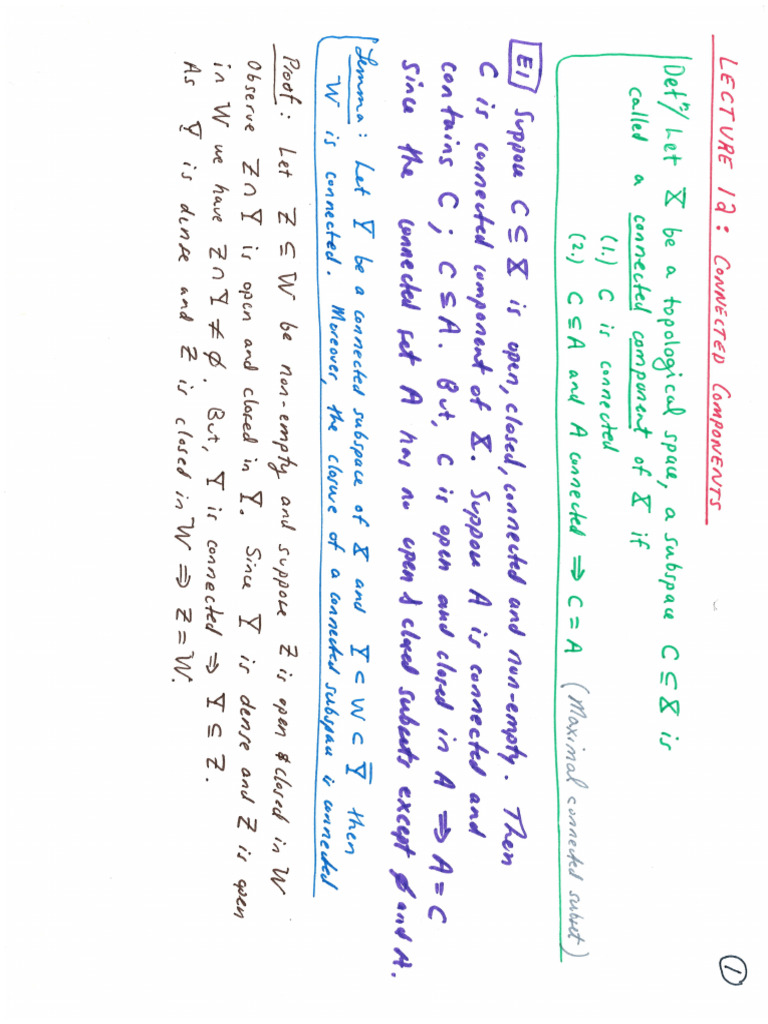 LECTURE 12: CONNECTED COMPONENTS
①
Defⁿ/ Let X be a topological space, a subspace C ⊆ X is
called a connected component of X if
(1.) C is connected
(2.) C ⊆ A and A connected ⇒ C = A (Maximal connected subset)
E1 Suppose C ⊆ X is open, closed, connected and non-empty. Then
C is connected component of X. Suppose A is connected and
contains C; C ⊆ A. But, C is open and closed in A ⇒ A = C
since the connected set A has no open & closed subsets except ∅ and A.
Lemma: Let Y be a connected subspace of X and Y ⊂ W ⊂ Y̅ then
W is connected. Moreover, the closure of a connected subspace is connected
Proof: Let Z ⊆ W be non-empty and suppose Z is open & closed in W
Observe Z∩Y is open and closed in Y. Since Y is dense and Z is open
in W we have Z∩Y ≠ ∅. But, Y is connected ⇒ Y ⊆ Z.
As Y is dense and Z is closed in W ⇒ Z = W.